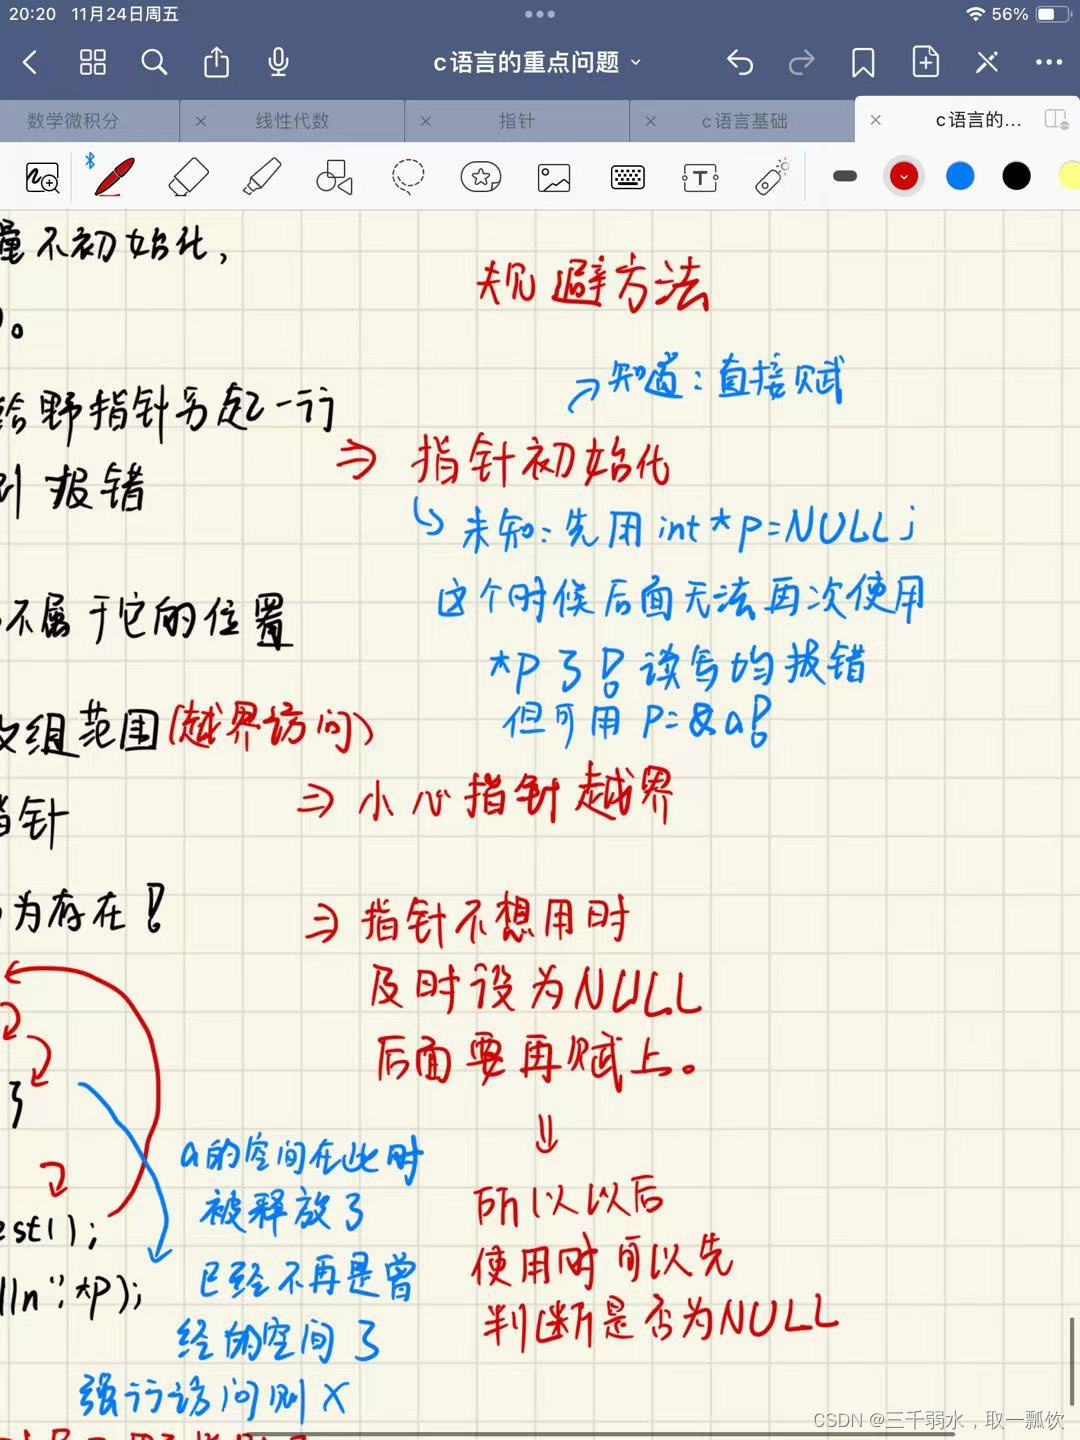 20:20 11月24日周五
56%
c语言的重点问题
数学微积分
线性代数
指针
c语言基础
c语言的...
量不初始化，
规避方法
知道：直接赋
给野指针另起一行
指针初始化
则报错
未知：先用 int *p=NULL;
这个时候后面无法再次使用
不属于它的位置
*p了！读写均报错
但可用 p=&a！
数组范围(越界访问)
小心指针越界
指针
为存在！
指针不想用时
及时设为NULL
后面要再赋上。
了
a的空间在此时
被释放了
所以以后
est();
已经不再是曾
使用时可以先
lln",*p);
经的空间了
判断是否为NULL
强行访问则×
CSDN @三千弱水，取一瓢饮